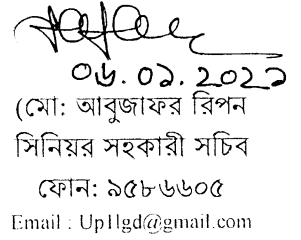 ০৬.০১.২০২১
(মো: আবুজাফর রিপন
সিনিয়র সহকারী সচিব
ফোন: ৯৫৮৬৬০৫
Email : Up1lgd@gmail.com